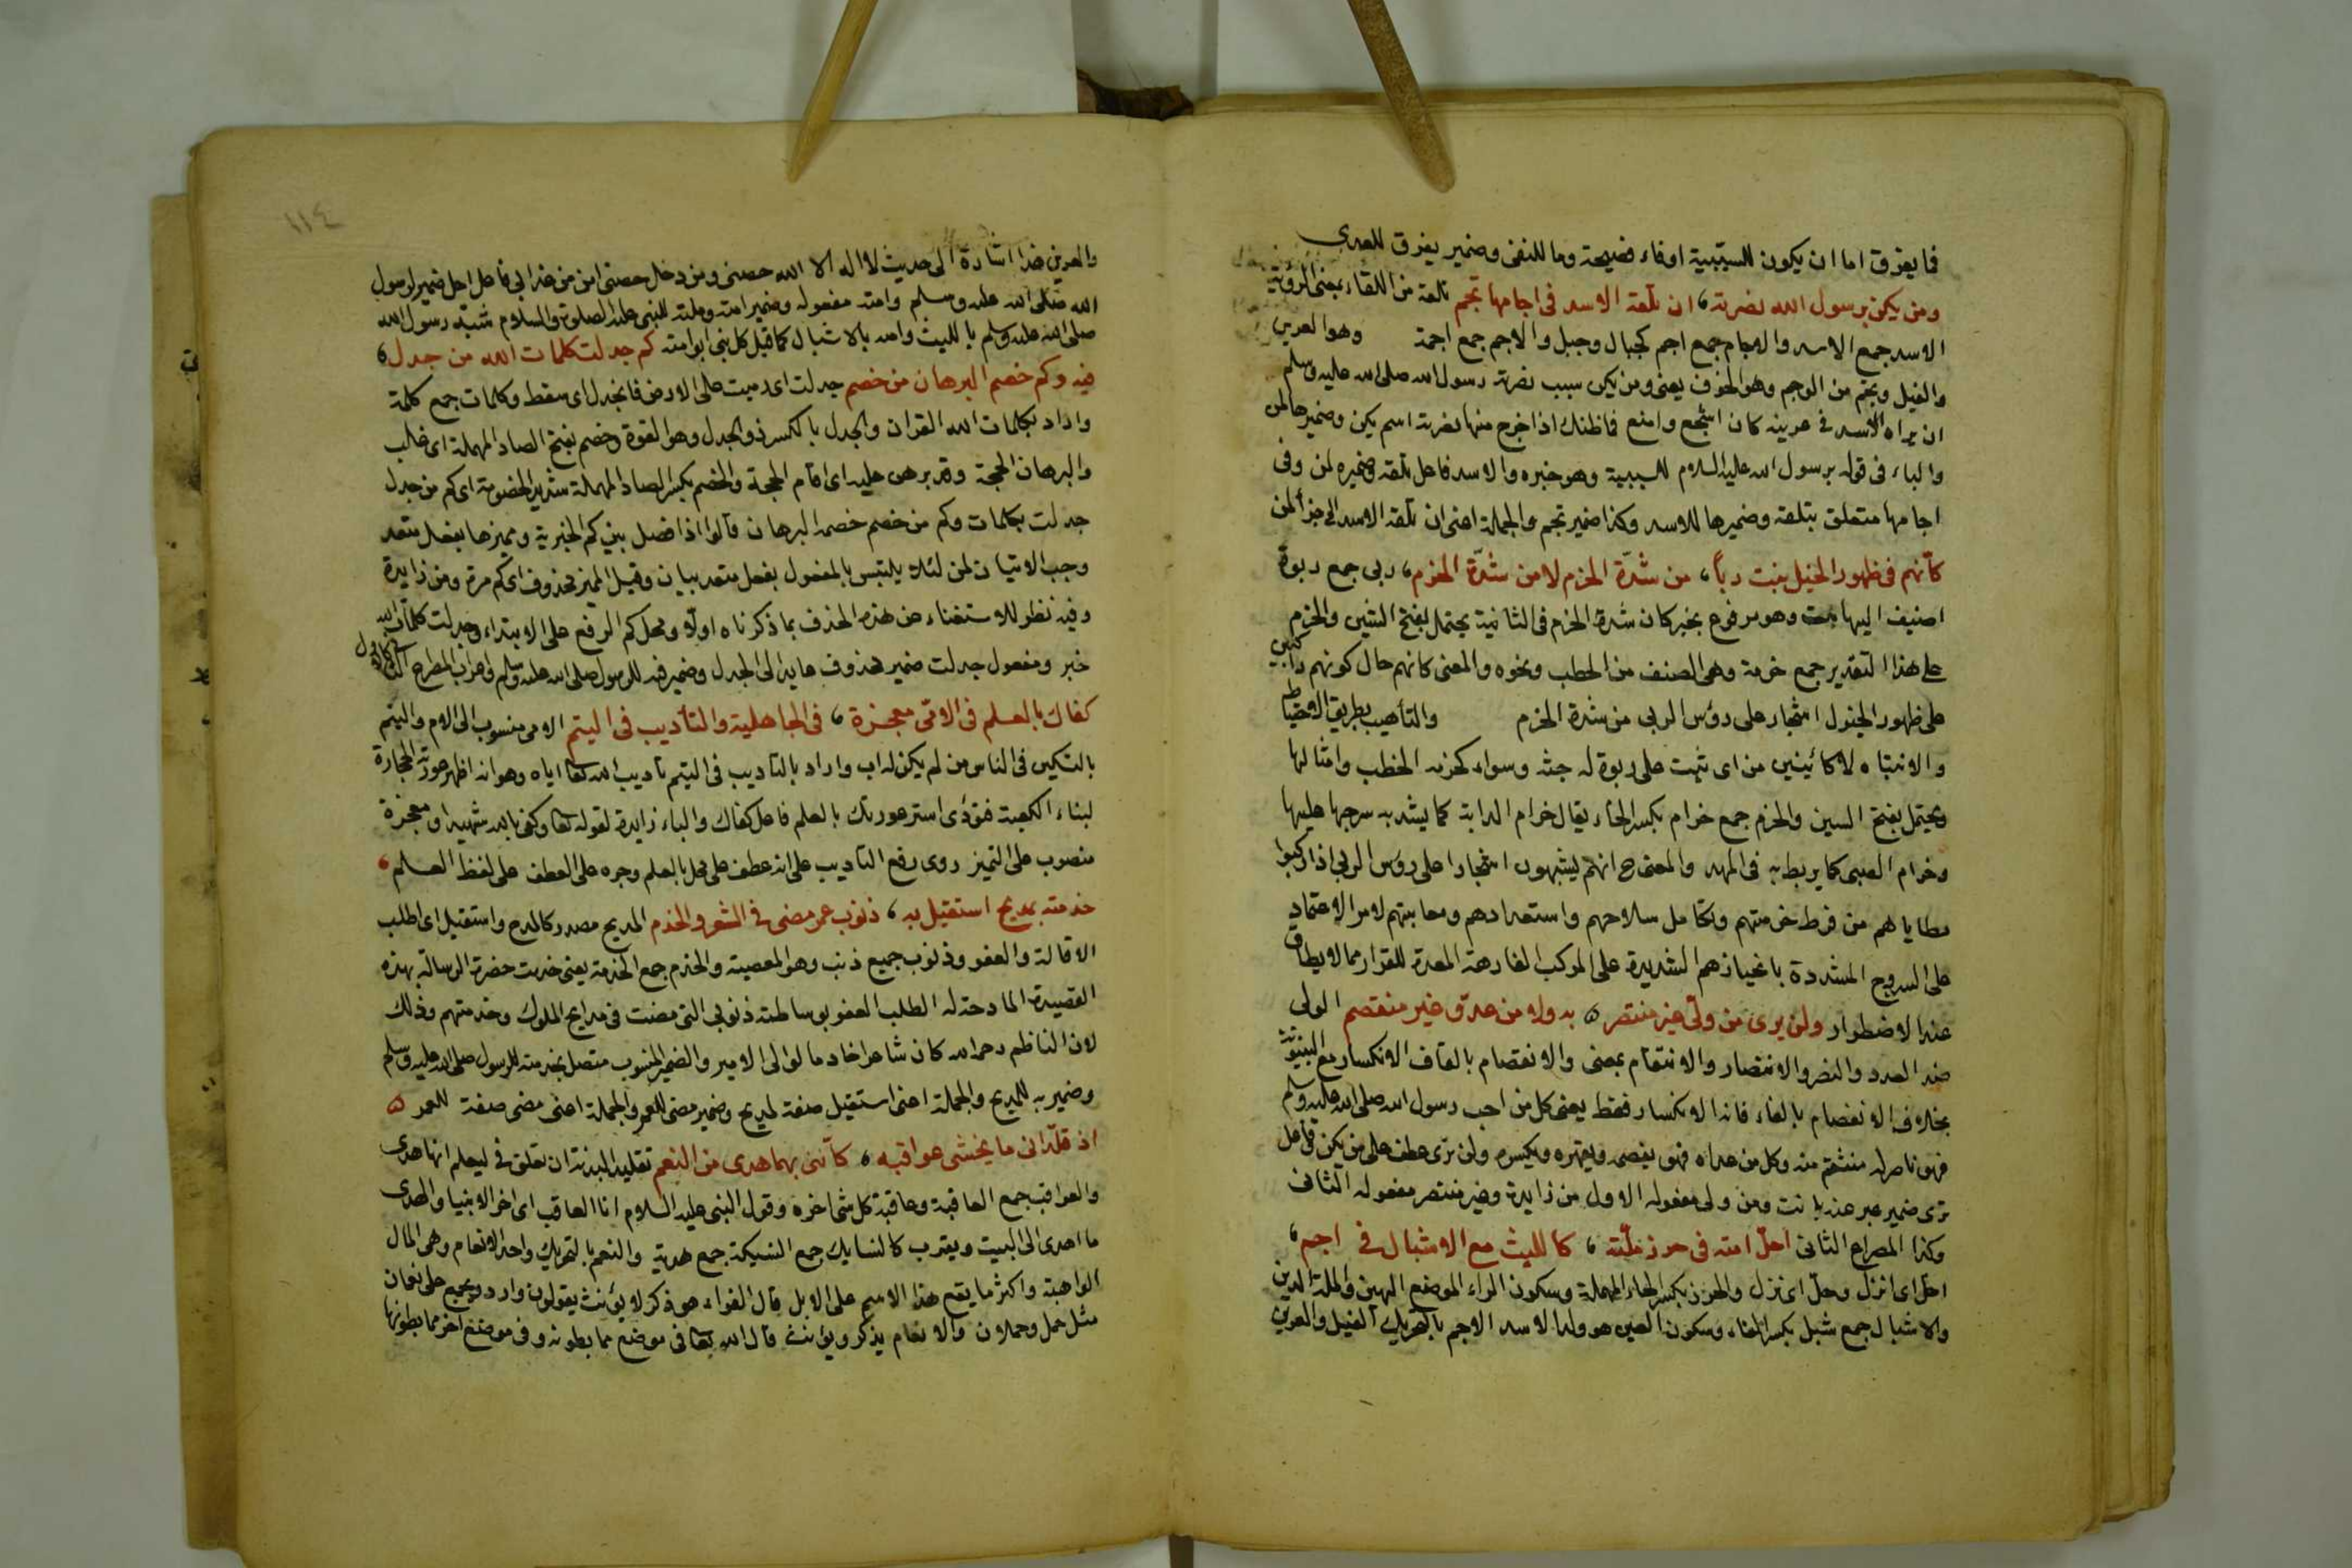 فما يفرق اما ان يكون للسببية اوفاء فضيحة وما للنفى وضمير يفرق للعدى
ومن يكن برسول الله نصرته، ان تلقه الاسد فى اجامها تجم تلقه من اللقاء بمعنى الرؤية
الاسد جمع الاسد والاجام جمع اجم كجبال وجبل والاجم جمع اجمة وهو العرين
والغيل وتجم من الوجم وهو الخوف يعنى ومن يكن سبب نصرته رسول الله صلى الله عليه وسلم
ان يراه الاسد فى عرينه كان اشجع وامنع فما ظنك اذا خرج منها نصرته اسم يكن وضميرها لمن
والباء فى قوله برسول الله عليه السلام للسببية وهو خبره والاسد فاعل تلقه وضميره لمن وفى
اجامها متعلق بتلقه وضميرها للاسد وكذا ضمير تجم والجملة اعنى ان تلقه الاسد الى جزأ لمن
كأنهم فى ظهور الخيل نبت رباً، من شدّة الحزم لا من شدّة الحزم، ربى جمع ربوة
اضيف اليها نبت وهو مرفوع بخبر كان شدة الحزم فى الثانية يحتمل بفتح الشين والحزم
على هذا التقدير جمع حزمة وهى الصنف من الحطب ونحوه والمعنى كانهم حال كونهم راكبين
على ظهور الخيول اشجار على رؤس الربى من شدة الحزم والتأهب بطريق الاحتياط
والانتباه لا كائنين من اى نبت على ربوة له جثه وسواء كحزمه الحطب وامثالها
ويحتمل بفتح السين والحزم جمع حزام بكسر الحاء يقال حزام الدابة كما يشد به سرجها عليها
وحزام الصبى كما يربط به فى المهد والمعنى ح انهم يشبهون اشجارا على رؤس الربى اذا ركبوا
مطاياهم من فرط حزمتهم وتكامل سلاحهم واستعدادهم لامر الاعتماد
على السروج المشددة الشديدة على المركب الفارهة المعدة للقرار مما لا يطاق
عند الاضطرار ولن يرى من ولىّ غير منتصر ٥ به ولا من عدوّ غير منقصم الولى
ضد العدو والنصر والانتصار والانتقام بمعنى والانقصام بالقاف الانكسار مع البينونة
بخلاف الانفصام بالفاء فانه الانكسار فقط يعنى كل من احب رسول الله صلى الله عليه وسلم
فهو ناصر له منتقم منه وكل من عداه فهو يقصمه ويقهره ويكسره ولن ترى عطف على من يكن فاعل
ترى ضمير عبر عنه بانت ومن ولى مفعوله الاول من زايدة وغير منتصر مفعوله الثانى
وكذا المصراع الثانى احلّ امته فى حرز ملّته، كالليث مع الاشبال فى اجم،
احل اى انزل وحل اى نزل والحرز بكسر الحاء المهملة وسكون الراء الموضع الحصين والملة الدين
والاشبال جمع شبل بكسر الفاء وسكون العين هو ولد الاسد الاجم بالتحريك الغيل والعرين
١١٤
والعرين هذا اشارة الى حديث لا اله الا الله حصنى ومن دخل حصنى امن من عذابى فاعل احل ضمير لرسول
الله صلى الله عليه وسلم وامته مفعوله وضمير امته وملته للنبى عليه الصلوة والسلام شبّه رسول الله
صلى الله عليه وسلم بالليث وامته بالاشبال كما قيل كل نبى ابو امته كم جدلت كلمات الله من جدل،
فيه وكم خصم البرهان من خصم جدلت اى رميت على الارض فانجدل اى سقط وكلمات جمع كلمة
واراد بكلمات الله القران والجدل بالكسر ذو الجدل وهو القوة وخصم بفتح الصاد المهملة اى غلب
والبرهان الحجة وقد برهن عليه اى اقام الحجة والخصم بكسر الصاد المهملة شديد الخصومة اى كم من جدل
جدلت بكلمات وكم من خصم خصمه البرهان قالوا اذا فصل بين كم الخبرية ومميزها بفعل متعد
وجب الاتيان لمن لئلا يلتبس بالمفعول بفعل متعد بيان وقيل المميز محذوف اى كم مرة ومن زايدة
وفيه نظر للاستغناء عن هذه الحذف بما ذكرناه اولا ومحل كم الرفع على الابتداء وجدلت كلمات الله
خبر ومفعول جدلت ضمير محذوف عايد الى الجدل وضمير فيه للرسول صلى الله عليه وسلم واعراب المطرح الثانى كالاول
كفاك بالعلم فى الامّى معجزة، فى الجاهلية والتأديب فى اليتم الامى منسوب الى الام واليتم
بالتسكين فى الناس من لم يكن له اب واراد بالتاديب فى اليتم تاديب الله تعالى اياه وهو انه اظهر عورته الحجارة
لبناء الكعبة فنودى استر عورتك بالعلم فاعل كفاك والباء زايدة لقوله تعالى وكفى بالله شهيدا ومعجزة
منصوب على التميز روى رفع التاديب على انه عطف على محل بالعلم وجره على العطف على لفظ العلم،
خدمته بمديح استقيل به، ذنوب عمر مضى فى الشعر والخدم المديح مصدر كالمدح واستقيل اى اطلب
الاقالة والعفو وذنوب جميع ذنب وهو المعصية والخدم جمع الخدمة يعنى خدمت حضرة الرسالة بهذه
القصيدة المادحة له الطلب العفو بوساطته ذنوبى التى مضت فى مدايح الملوك وخدمتهم وذلك
لان الناظم رحمه الله كان شاعرا خادما لوالى الامير والضمير المنسوب متصل بخدمته للرسول صلى الله عليه وسلم
وضمير به للمديح والجملة اعنى استقيل صفة لمديح وضمير مضى للعمر والجملة اعنى مضى صفة للعمر ٥
اذ قلّدانى ما يخشى عواقبه، كأنّنى بهما هدى من النعم تقليد البدنة ان تعلق فى ليعلم انها هدى
والعواقب جمع العاقبة وعاقبة كل شئ اخره وقول النبى عليه السلام انا العاقب اى اخر الانبيا والهدى
ما اهدى الى البيت ويقرب كالنسايك جمع النسيكة جمع هدية والنعم بالتحريك واحد الانعام وهى المال
الراهبة واكثر ما يقع هذا الاسم على الابل قال الفراء هو ذكر لا يؤنث يقولون وارد ويجمع على نعمان
مثل حمل وحملان والانعام يذكر ويؤنث قال الله تعالى فى موضع مما بطونه وفى موضع اخر مما بطونها